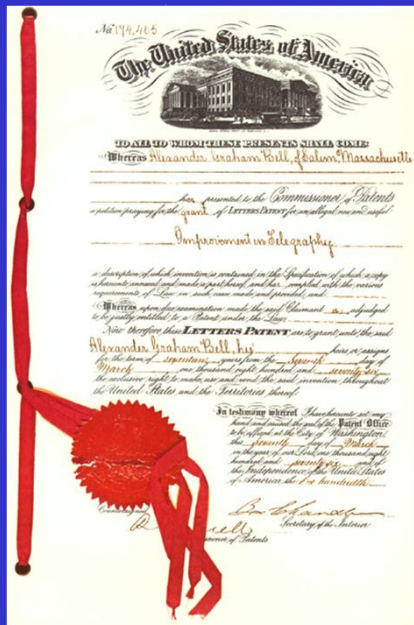 No. 174,465
The United States of America
TO ALL TO WHOM THESE PRESENTS SHALL COME:
Whereas Alexander Graham Bell, of Salem, Massachusetts
has presented to the Commissioner of Patents
a petition praying for the grant of LETTERS PATENT for an alleged new and useful
Improvement in Telegraphy
a description of which invention is contained in the Specification of which a copy
is hereunto annexed and made a part hereof, and has complied with the various
requirements of Law in such case made and provided, and
Whereas upon due examination made the said Claimant is adjudged
to be justly entitled to a Patent under the Law.
Now therefore these LETTERS PATENT are to grant unto the said
Alexander Graham Bell, his heirs or assigns
for the term of seventeen years from the seventh day of
March one thousand eight hundred and seventy-six
the exclusive right to make, use and vend the said invention throughout
the United States and the Territories thereof.
In testimony whereof I have hereunto set my
hand and caused the seal of the Patent Office
to be affixed at the City of Washington
this seventh day of March
in the year of our Lord one thousand eight
hundred and seventy-six and of
the Independence of the United States
of America the one hundredth.
Secretary of the Interior
of Patents